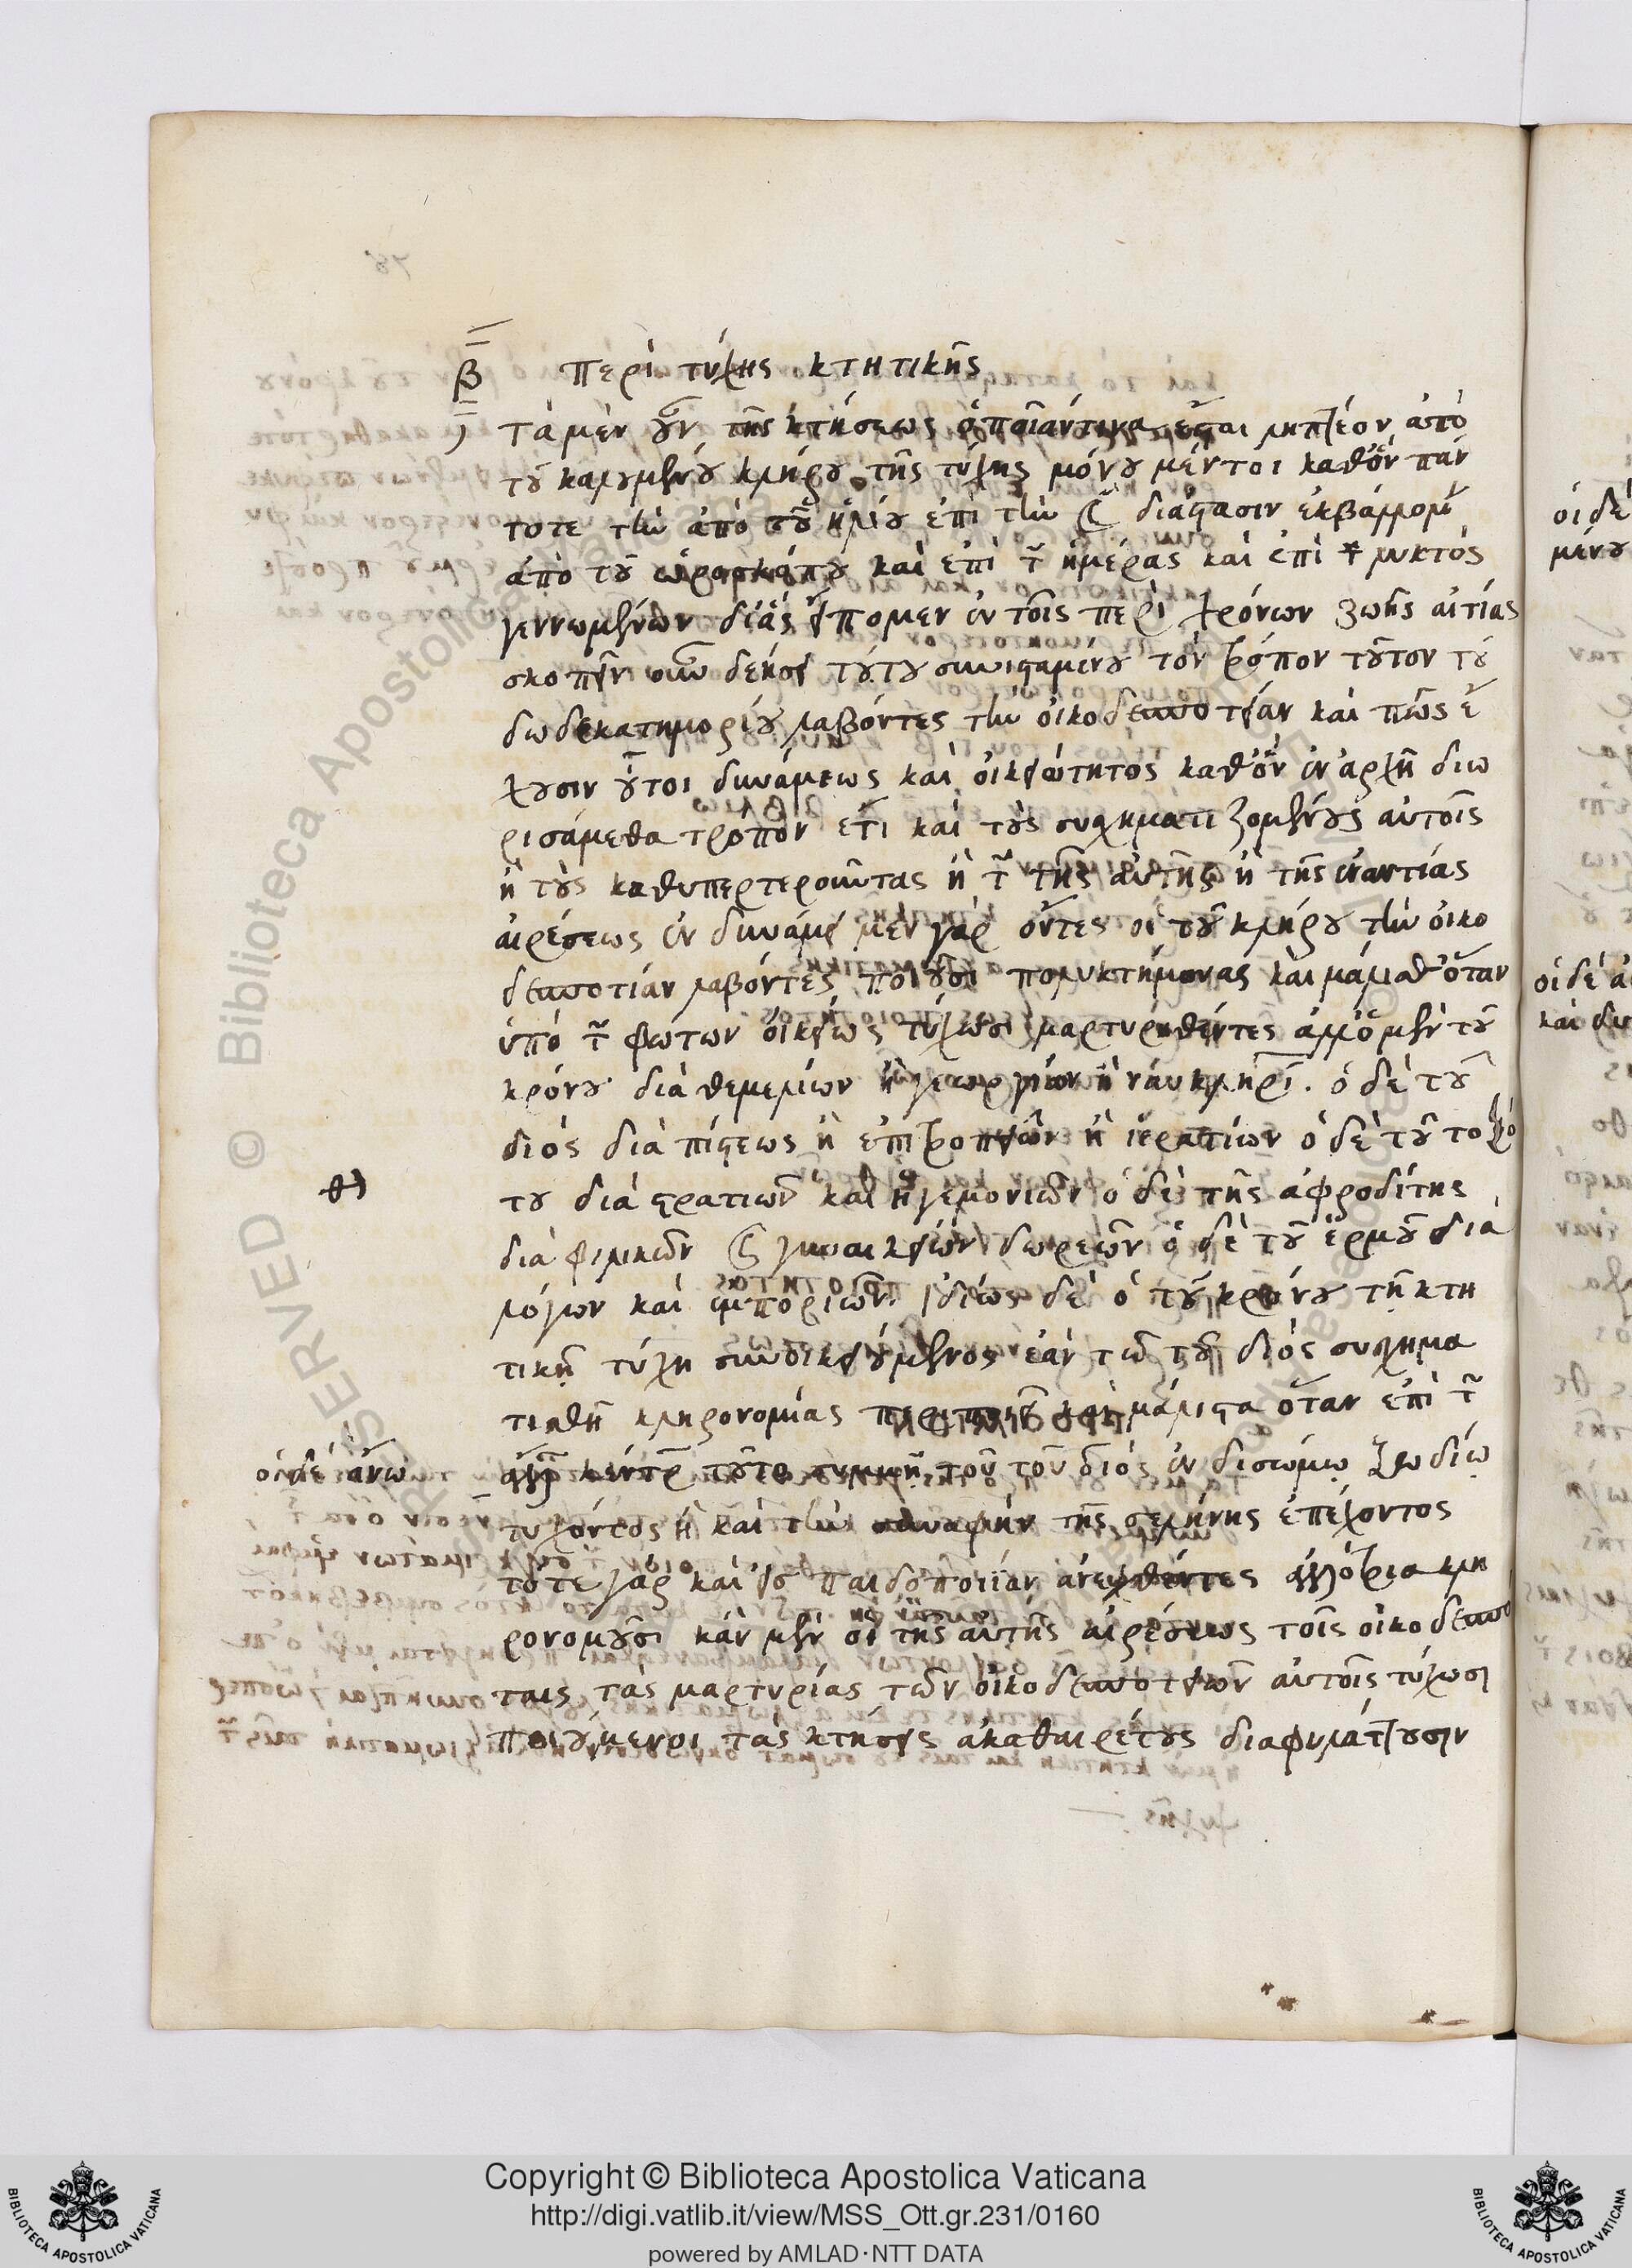 β περὶ τύχης κτητικῆς
τὰ μὲν οὖν τῆς κτήσεως ὁποῖα ἄν τινα εἶται ληπτέον ἀπὸ
τοῦ καλουμένου κλήρου τῆς τύχης μόνου μέντοι καθ' ὃν πάν
τοτε τὴν ἀπὸ τοῦ ἡλίου ἐπὶ τὴν ☾ διάστασιν ἐκβάλλομ
ἀπὸ τοῦ ὡροσκόπου καὶ ἐπὶ τ ἡμέρας καὶ ἐπὶ τ νυκτὸς
γεννωμένων δι' ἃς εἴπομεν ἐν τοῖς περὶ χρόνων ζωῆς αἰτίας
σκοπεῖν οὖν δεήσει τούτου συνισταμένου τὸν τρόπον τοῦτον τοῦ
δωδεκατημορίου λαβόντες τὴν οἰκοδεσποτείαν καὶ πῶς ἔ
χουσιν οὗτοι δυνάμεως καὶ οἰκειότητος καθ' ὃν ἐν ἀρχῇ διω
ρισάμεθα τρόπον ἔτι καὶ τοὺς συσχηματιζομένους αὐτοῖς
ἢ τοὺς καθυπερτεροῦντας ἢ τ τῆς αὐτῆς ἢ τῆς ἐναντίας
αἱρέσεως ἐν δυνάμει μὲν γὰρ ὄντες οἱ τοῦ κλήρου τὴν οἰκο
δεσποτίαν λαβόντες ποιοῦσι πολυκτήμονας καὶ μάλισθ' ὅταν
ὑπὸ τ φώτων οἰκείως τύχωσι μαρτυρηθέντες ἀλλ' ὁ μὲν τοῦ
κρόνου διὰ θεμελίων ἢ γεωργιῶν ἢ ναυκληρι. ὁ δὲ τοῦ
διὸς διὰ πίστεως ἢ ἐπιτροπειῶν ἢ ἱερατιῶν ὁ δὲ τοῦ
του διὰ στρατιῶν καὶ ἡγεμονιῶν ὁ δὲ τῆς ἀφροδίτης
διὰ φιλικῶν γυναικείων δωρεῶν ὁ δὲ τοῦ ἑρμοῦ διὰ
λόγων καὶ ἐμποριῶν. ἰδίως δὲ ὁ τοῦ κρόνου τῇ κτη
τικῇ τύχῃ συνοικειούμενος ἐὰν τῷ τοῦ διὸς συσχημα
τισθῇ κληρονομίας περιποιεῖ καὶ μάλιστα ὅταν ἐπὶ τ
οἱ δὲ ἄνω
κέντρ τοῦτο τοῦ τοῦ διὸς ἐν δισώμῳ ζωδίῳ
τυχόντος ἢ καὶ τὴν συναφὴν τῆς σελήνης ἐπέχοντος
τότε γὰρ καὶ εἰσ παιδοποιίαν ἀνεχθέντες ἀλλότρια κλη
ρονομοῦσι κἂν μὲν οἱ τῆς αὐτῆς αἱρέσεως τοῖς οἰκοδεσπό
ταις τὰς μαρτυρίας τῶν οἰκοδεσποτειῶν αὐτοῖς τύχωσι
ποιούμενοι τὰς κτήσεις ἀκαθαιρέτους διαφυλάττουσιν
οἱ δὲ
μένου
Copyright © Biblioteca Apostolica Vaticana
http://digi.vatlib.it/view/MSS_Ott.gr.231/0160
powered by AMLAD·NTT DATA
BIBLIOTECA APOSTOLICA VATICANA
BIBLIOTECA APOSTOLICA VATICANA